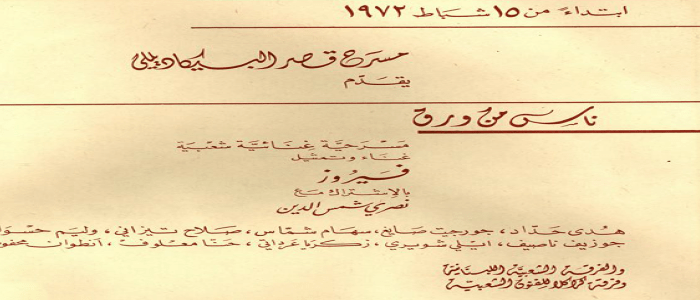 ابتداءً من ١٥ شباط ١٩٧٢
مسرح قصر البيكاديللي
يقدّم
ناس من ورق
مسرحيّة غنائيّة شعبيّة
غناء وتمثيل
فيروز
بالإشتراك مع
نصري شمس الدين
هدى حدّاد، جورجيت صايغ، سهام شمّاس، صلاح تيزاني، وليم
جوزيف ناصيف، ايلي شويري، زكريا عرداتي، حنّا معلوف، أنطوان
والفرقة الشعبيّة اللبنانيّة
وفرقة كركلا للفنون الشعبيّة